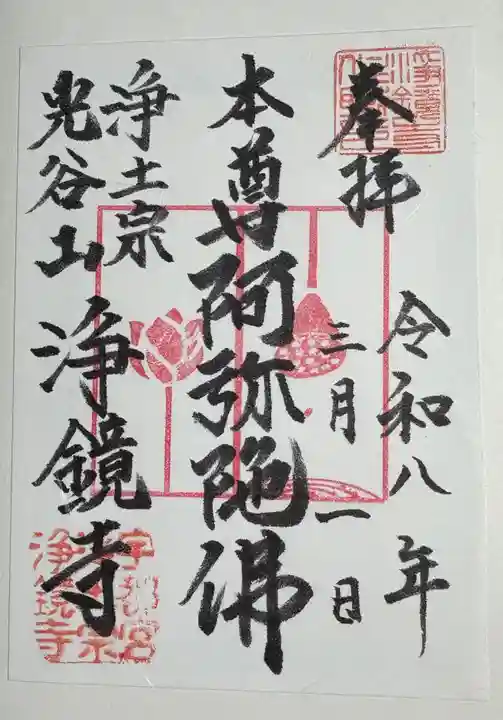 奉拝
令和八年
三月一日
本尊阿弥陀佛
浄土宗
光谷山 浄鏡寺
宇都宮
浄鏡寺